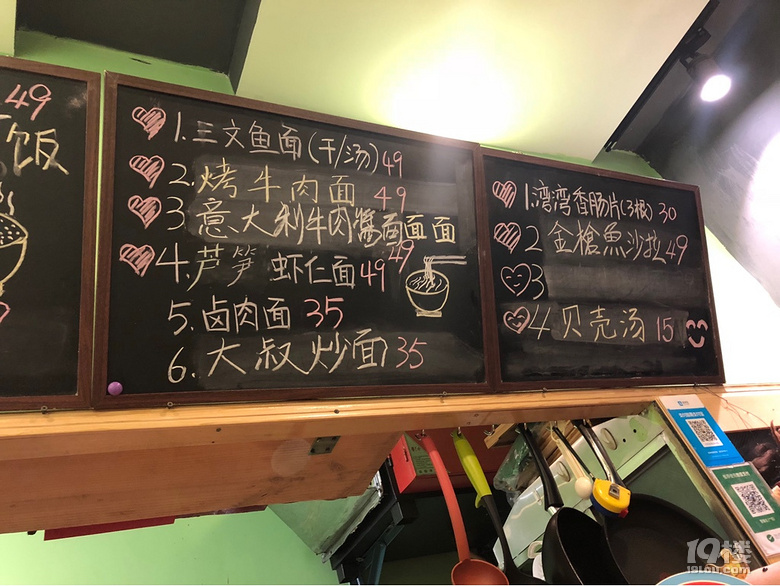 49
饭
1.三文鱼面(干/汤)49
2.烤牛肉面 49
3.意大利牛肉酱面面面
49
4.芦笋虾仁面49
5.卤肉面 35
6.大叔炒面35
1.湾湾香肠片(3根)30
2 金槍魚沙拉49
3
4 贝壳汤 15
19楼
19lou.com